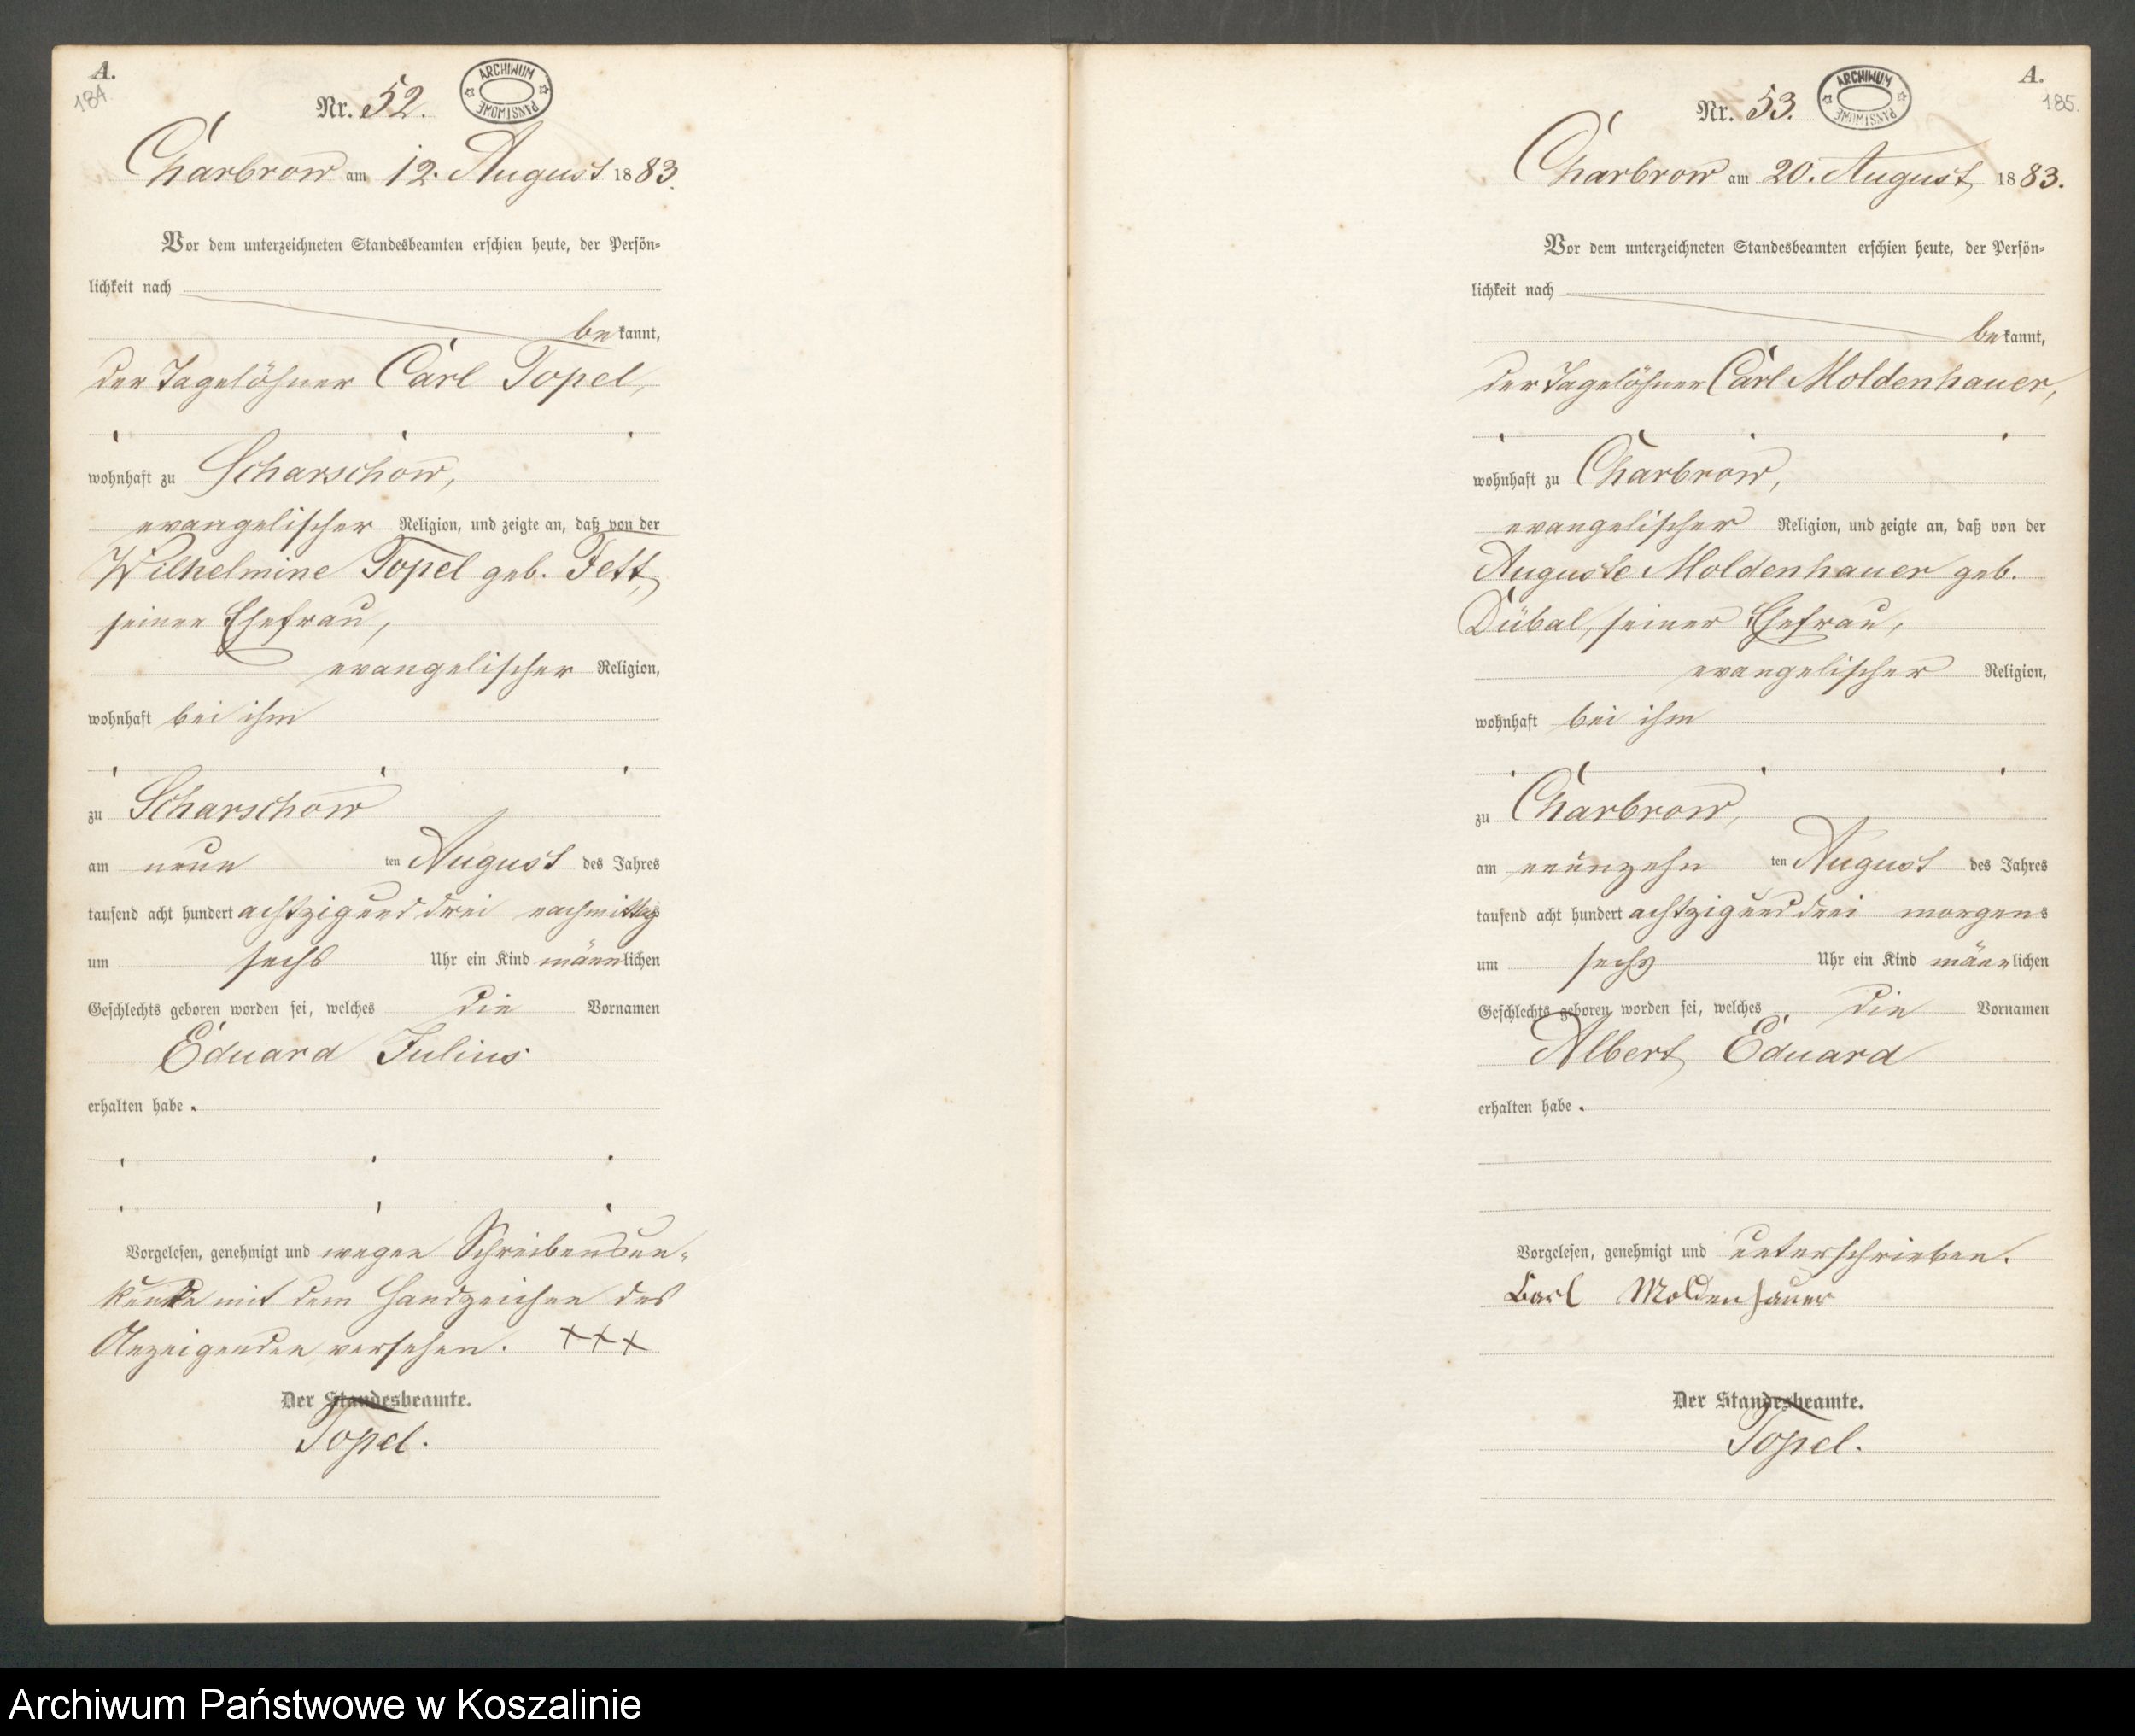 A.
184.
Nr. 52.
ARCHIWUM PAŃSTWOWE
Charbrow am 12. August 1883.
Vor dem unterzeichneten Standesbeamten erschien heute, der Persön-
lichkeit nach
bekannt,
der Tagelöhner Carl Topel,
wohnhaft zu Scharschow,
evangelischer Religion, und zeigte an, daß von der
Wilhelmine Topel geb. Fett,
seiner Ehefrau,
evangelischer Religion,
wohnhaft bei ihm
zu Scharschow
am neun ten August des Jahres
tausend acht hundert achtzig und drei nachmittags
um sechs Uhr ein Kind männlichen
Geschlechts geboren worden sei, welches die Vornamen
Eduard Julius
erhalten habe.
Vorgelesen, genehmigt und wegen Schreibensun-
kunde mit dem Handzeichen des
Anzeigenden versehen. +++
Der Standesbeamte.
Topel.
A.
185.
Nr. 53.
ARCHIWUM PAŃSTWOWE
Charbrow am 20. August 1883.
Vor dem unterzeichneten Standesbeamten erschien heute, der Persön-
lichkeit nach
bekannt,
der Tagelöhner Carl Moldenhauer,
wohnhaft zu Charbrow,
evangelischer Religion, und zeigte an, daß von der
Auguste Moldenhauer geb.
Dübal, seiner Ehefrau,
evangelischer Religion,
wohnhaft bei ihm
zu Charbrow,
am neunzehn ten August des Jahres
tausend acht hundert achtzig und drei morgens
um sechs Uhr ein Kind männlichen
Geschlechts geboren worden sei, welches die Vornamen
Albert Eduard
erhalten habe.
Vorgelesen, genehmigt und unterschrieben.
Carl Moldenhauer
Der Standesbeamte.
Topel.
Archiwum Państwowe w Koszalinie